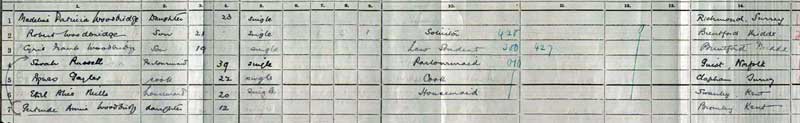 1. 2. 3. 4. 5. 10. 11. 12. 13. 14.
1 Madeline Patricia Woodbridge Daughter 23 Single Richmond, Surrey
2 Robert Woodbridge Son 21 Single Solicitor 428 Brentford Middx
3 Cyril Frank Woodbridge Son 19 Single Law Student 380 427 Brentford Middx
4 Sarah Russell Parlourmaid 39 Single Parlourmaid 010 Norfolk
5 Agnes Taylor Cook 22 Single Cook Clapham Surrey
6 Ethel Mills housemaid 20 Single Housemaid Swanley Kent
7 Gertrude Annie Woodbridge daughter 12 Bromley Kent